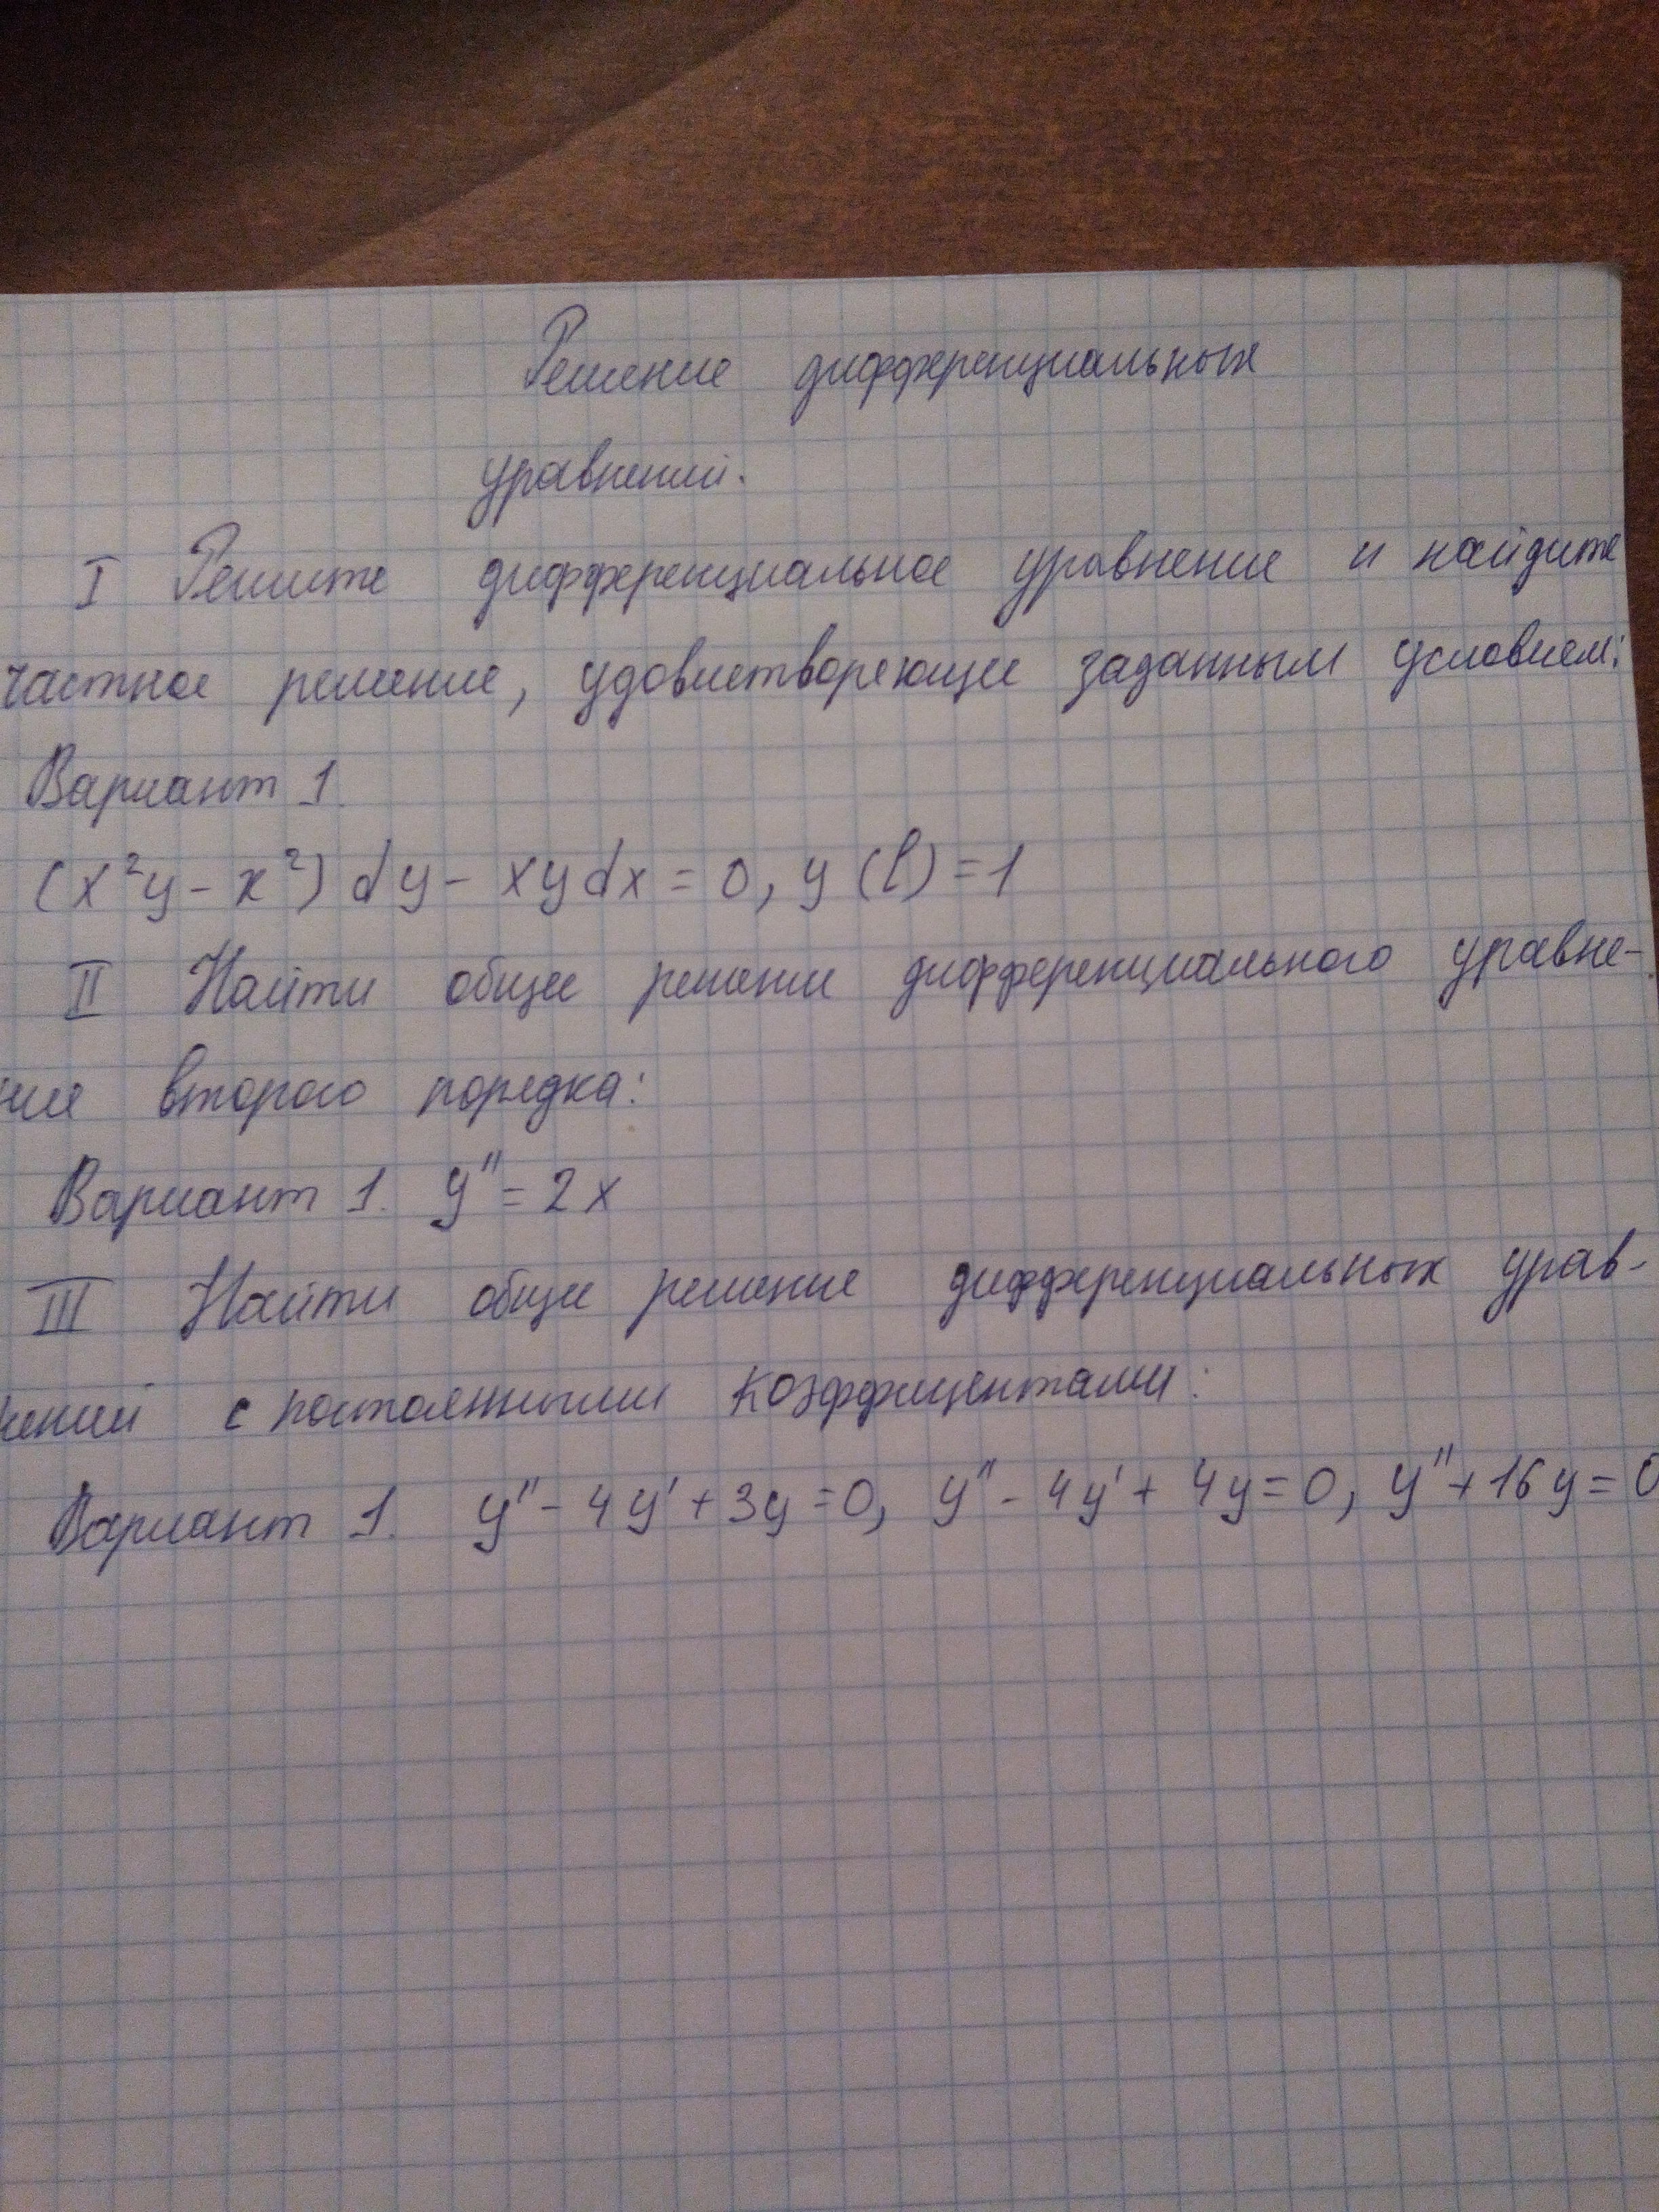 Решение дифференциальных
уравнений.
I Решите дифференциальное уравнение и найдите
частное решение, удовлетворяющее заданным условием:
Вариант 1.
(x²y - x²) dy - xydx = 0, y (l) = 1
II Найти общее решение дифференциального уравне-
ние второго порядка:
Вариант 1. y'' = 2x
III Найти общее решение дифференциальных урав-
нений с постоянными коэффицентами:
Вариант 1. y'' - 4y' + 3y = 0, y'' - 4y' + 4y = 0, y'' + 16y = 0